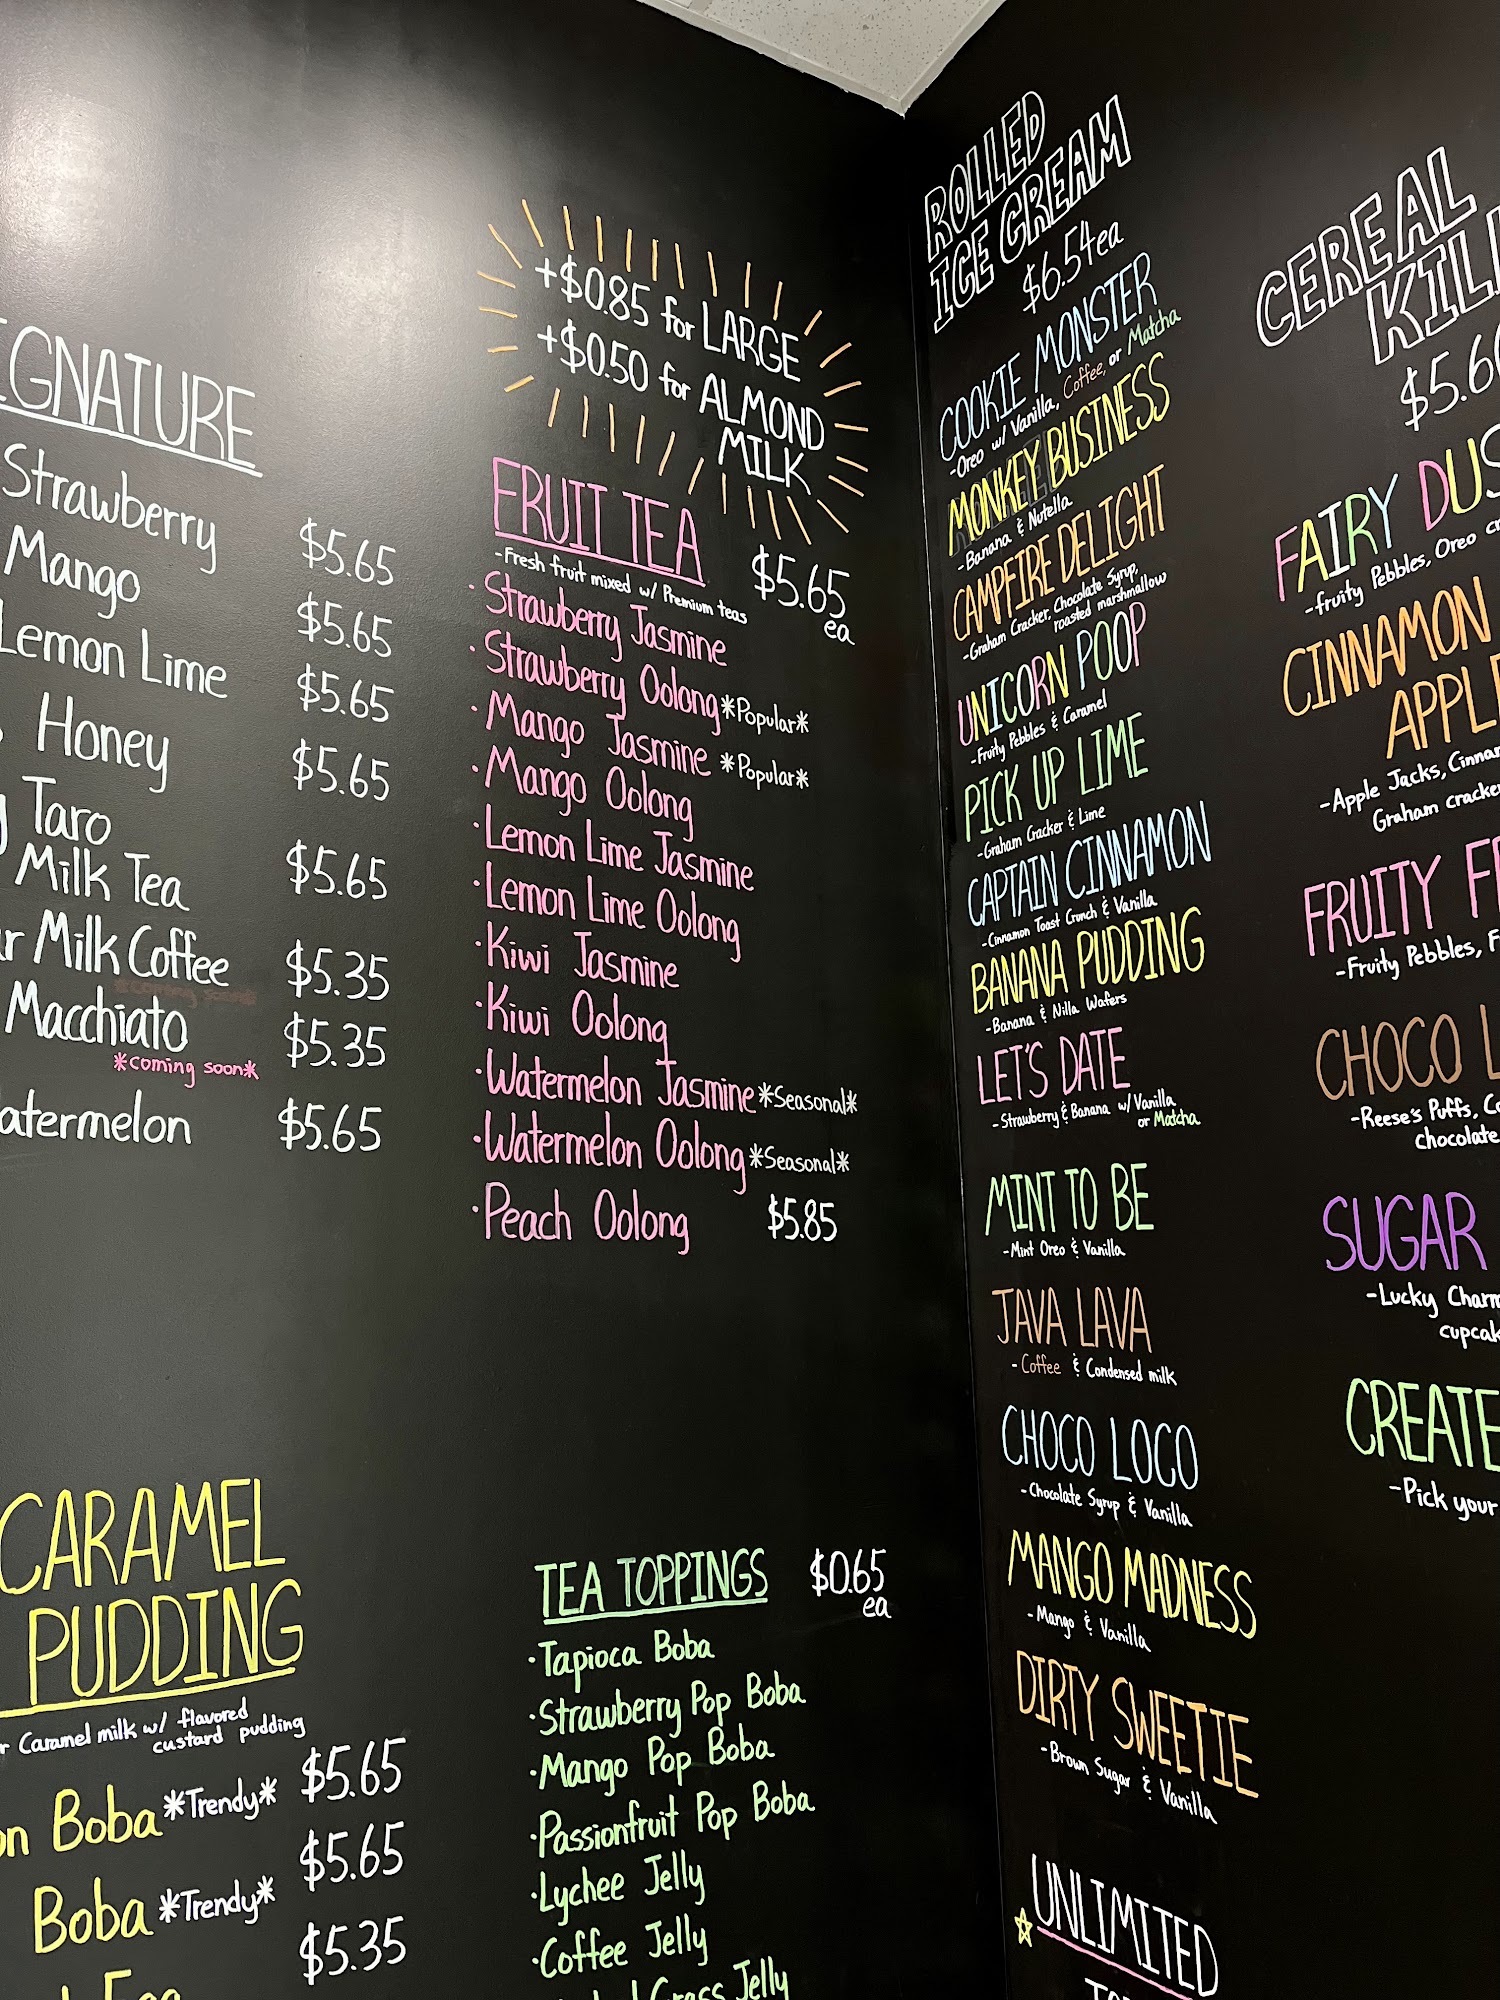 Strawberry $5.65
Mango $5.65
Lemon Lime $5.65
Honey $5.65
Taro
Milk Tea $5.65
Milk Coffee $5.35
Macchiato $5.35
*coming soon*
$5.65
CARAMEL
PUDDING
Caramel milk w/ flavored
custard pudding
Boba *Trendy* $5.65
Boba *Trendy* $5.65
$5.35
+$0.85 for LARGE
+$0.50 for ALMOND
MILK
FRUIT TEA $5.65
ea
-Fresh fruit mixed w/ Premium teas
·Strawberry Jasmine
·Strawberry Oolong *Popular*
·Mango Jasmine *Popular*
·Mango Oolong
·Lemon Lime Jasmine
·Lemon Lime Oolong
·Kiwi Jasmine
·Kiwi Oolong
·Watermelon Jasmine *Seasonal*
·Watermelon Oolong *Seasonal*
·Peach Oolong $5.85
TEA TOPPINGS $0.65
ea
·Tapioca Boba
·Strawberry Pop Boba
·Mango Pop Boba
·Passionfruit Pop Boba
·Lychee Jelly
·Coffee Jelly
Jelly
ROLLED
ICE CREAM
$6.54ea
COOKIE MONSTER
-Oreo w/ Vanilla, Coffee, or Matcha
MONKEY BUSINESS
-Banana & Nutella
CAMPFIRE DELIGHT
-Graham Cracker, Chocolate Syrup,
roasted marshmallow
UNICORN POOP
-Fruity Pebbles & Caramel
PICK UP LIME
-Graham Cracker & Lime
CAPTAIN CINNAMON
-Cinnamon Toast Crunch & Vanilla
BANANA PUDDING
-Banana & Nilla Wafers
LET'S DATE
-Strawberry & Banana w/ Vanilla
or Matcha
MINT TO BE
-Mint Oreo & Vanilla
JAVA LAVA
-Coffee & Condensed milk
CHOCO LOCO
-Chocolate Syrup & Vanilla
MANGO MADNESS
-Mango & Vanilla
DIRTY SWEETIE
-Brown Sugar & Vanilla
UNLIMITED
CEREAL
$5.6
FAIRY
-fruity Pebbles, Oreo
CINNAMON
-Apple Jacks,
Graham
FRUITY
-Fruity Pebbles,
CHOCO
-Reese's Puffs,
chocolate
SUGAR
-Lucky
CREATE
-Pick your